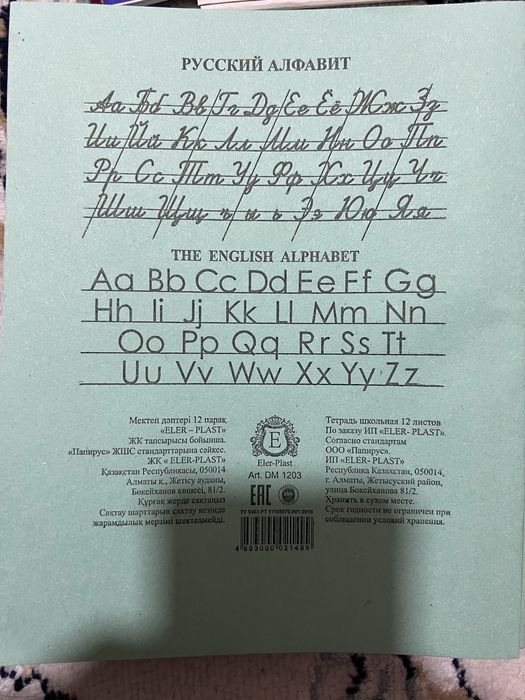 РУССКИЙ АЛФАВИТ
Аа Бб Вв Гг Дд Ее Ёё Жж Зз
Ии Йй Кк Лл Мм Нн Оо Пп
Рр Сс Тт Уу Фф Хх Цц Чч
Шш Щщ ъ ы ь Ээ Юю Яя
THE ENGLISH ALPHABET
Aa Bb Cc Dd Ee Ff Gg
Hh Ii Jj Kk Ll Mm Nn
Oo Pp Qq Rr Ss Tt
Uu Vv Ww Xx Yy Zz
Мектеп дәптері 12 парақ
«ELER – PLAST»
ЖК тапсырысы бойынша.
«Папирус» ЖШС стандарттарына сәйкес.
ЖК « ELER-PLAST»
Қазақстан Республикасы, 050014
Алматы қ., Жетісу ауданы,
Бокейханов көшесі, 81/2.
Құрғақ жерде сақтаңыз
Сақтау шарттарын сақтау кезінде
жарамдылық мерзімі шектелмейді.
E
Eler-Plast
Art. DM 1203
EAC
4 803000 021499
Тетрадь школьная 12 листов
По заказу ИП «ELER- PLAST».
Согласно стандартам
ООО «Папирус».
ИП «ELER- PLAST»
Республика Казахстан, 050014,
г. Алматы, Жетысуский район,
улица Бокейханова 81/2.
Хранить в сухом месте.
Срок годности не ограничен при
соблюдении условий хранения.